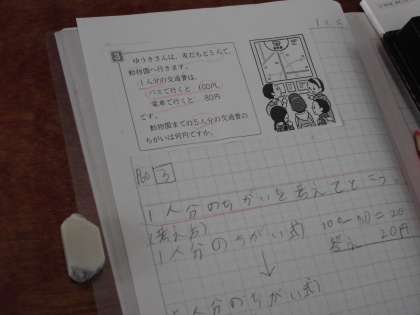 3
ゆうきさんは、友だちと5人で、
動物園へ行きます。
1人分の交通費は、
バスで行くと 100円
電車で行くと 80円
です。
動物園までの5人分の交通費の
ちがいは何円ですか。
3
1人分のちがいを考えてとこう
(考え方)
1人分のちがい式 100-80=20
答え 20円
5人分のちがい式